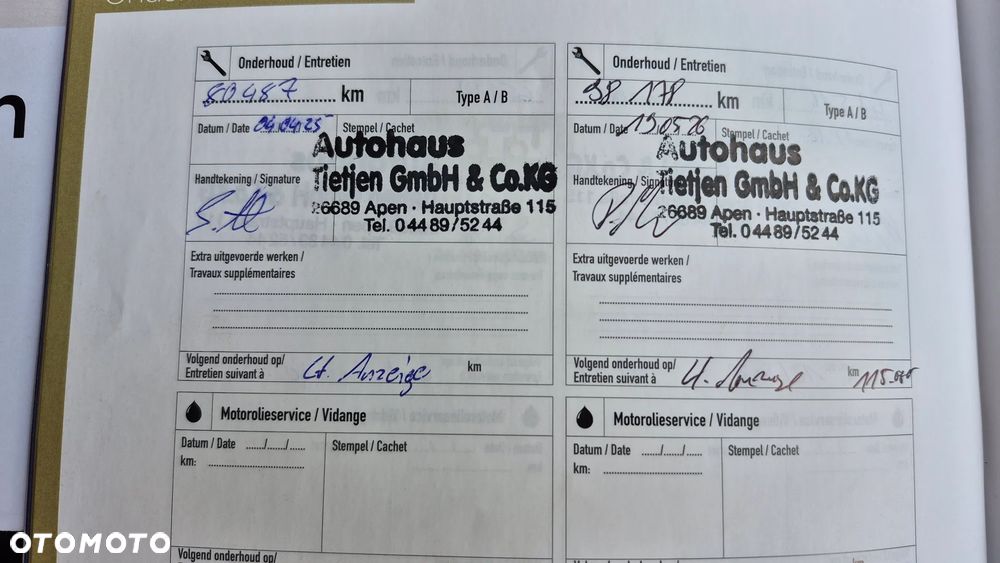 Onderhoud / Entretien
80487 km Type A / B
Datum / Date 04.04.25 Stempel / Cachet
Autohaus
Tietjen GmbH & Co.KG
Handtekening / Signature
26689 Apen · Hauptstraße 115
Tel. 0 44 89 / 52 44
Extra uitgevoerde werken /
Travaux supplémentaires
Volgend onderhoud op/
Entretien suivant à lt. Anzeige km
Motorolieservice / Vidange
Datum / Date ....../....../...... Stempel / Cachet
km:
Volgend onderhoud op/
Onderhoud / Entretien
98 178 km Type A / B
Datum / Date 19.05.26 Stempel / Cachet
Autohaus
Tietjen GmbH & Co.KG
Handtekening / Signature
26689 Apen · Hauptstraße 115
Tel. 0 44 89 / 52 44
Extra uitgevoerde werken /
Travaux supplémentaires
Volgend onderhoud op/
Entretien suivant à lt. Anzeige km
Motorolieservice / Vidange
Datum / Date ....../....../...... Stempel / Cachet
km:
Volgend onderhoud op/
km
OTOMOTO